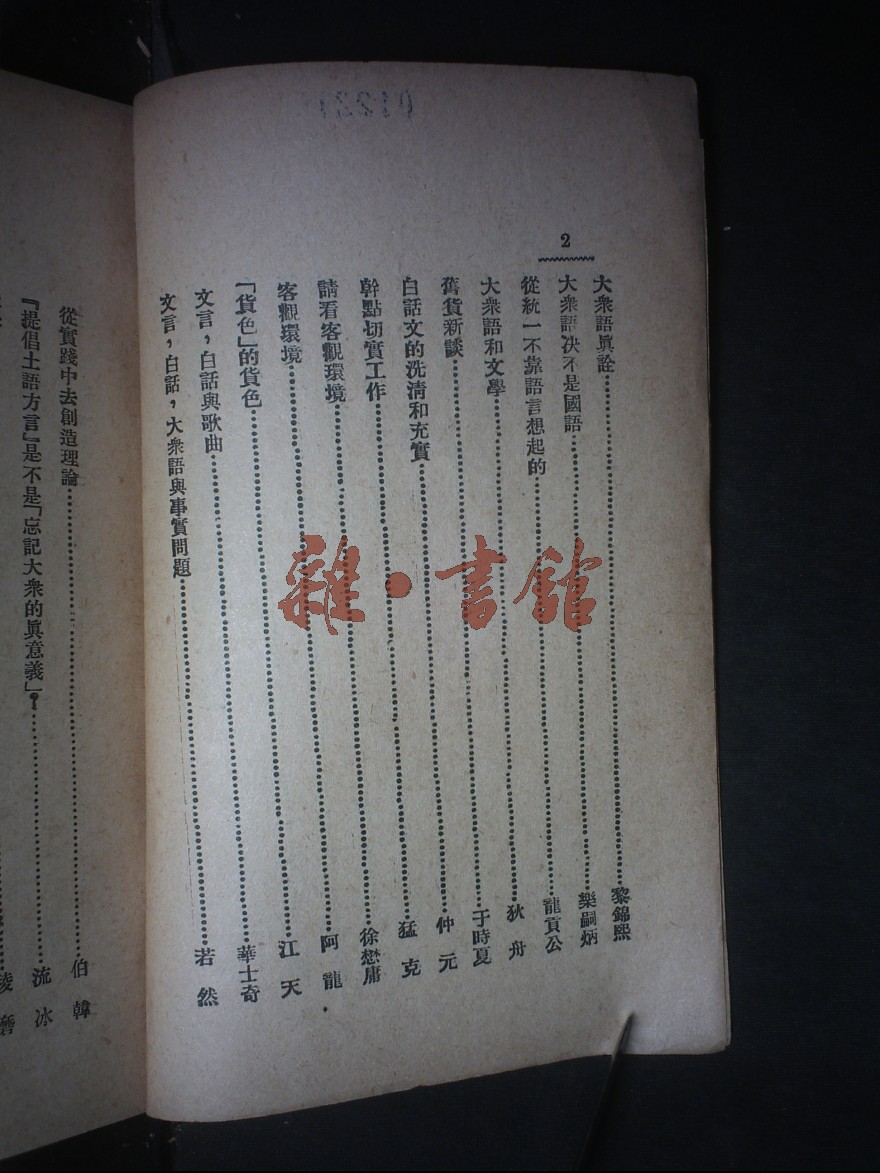 2
大衆語眞詮……黎錦熙
大衆語決不是國語……樂嗣炳
從統一不靠語言想起的……龍貢公
大衆語和文學……狄舟
舊貨新談……于時夏
白話文的洗清和充實……仲元
幹點切實工作……猛克
請看客觀環境……徐懋庸
客觀環境……阿龍
「貨色」的貨色……江天
文言，白話與歌曲……華士奇
文言，白話，大衆語與事實問題……若然
從實踐中去創造理論……伯韓
『提倡土語方言』是不是「忘記大衆的眞意義」？……流冰
雜·書館